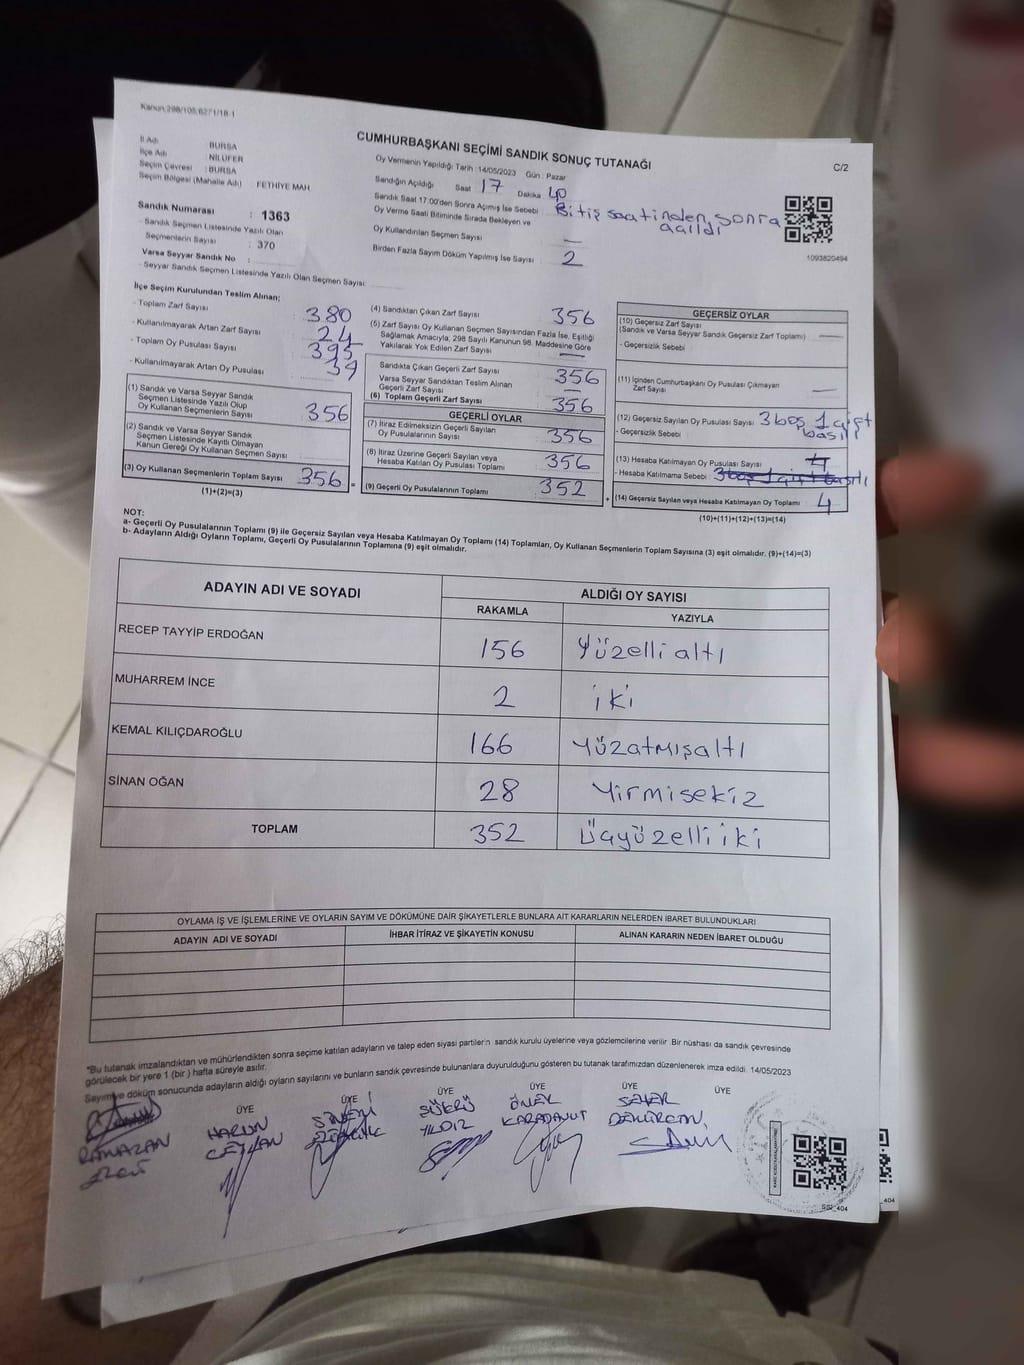 Kanun:298/105;6271/18-1
CUMHURBAŞKANI SEÇİMİ SANDIK SONUÇ TUTANAĞI
C/2
İl Adı : BURSA
İlçe Adı : NİLÜFER
Seçim Çevresi : BURSA
Seçim Bölgesi (Mahalle Adı) : FETHİYE MAH
Sandık Numarası : 1363
- Sandık Seçmen Listesinde Yazılı Olan
Seçmenlerin Sayısı : 370
Varsa Seyyar Sandık No :
- Seyyar Sandık Seçmen Listesinde Yazılı Olan Seçmen Sayısı:
Oy Vermenin Yapıldığı Tarih : 14/05/2023 Gün : Pazar
Sandığın Açıldığı Saat 17 Dakika 40
Sandık Saat 17:00'den Sonra Açılmış İse Sebebi : Bitiş saatinden sonra açıldı
Oy Verme Saati Bitiminde Sırada Bekleyen ve
Oy Kullandırılan Seçmen Sayısı —
Birden Fazla Sayım Döküm Yapılmış İse Sayısı : 2
1093820494
İlçe Seçim Kurulundan Teslim Alınan;
- Toplam Zarf Sayısı : 380
- Kullanılmayarak Artan Zarf Sayısı : 24
- Toplam Oy Pusulası Sayısı : 395
- Kullanılmayarak Artan Oy Pusulası : 39
(1) Sandık ve Varsa Seyyar Sandık
Seçmen Listesinde Yazılı Olup
Oy Kullanan Seçmenlerin Sayısı 356
(2) Sandık ve Varsa Seyyar Sandık
Seçmen Listesinde Kayıtlı Olmayan
Kanun Gereği Oy Kullanan Seçmen Sayısı
(3) Oy Kullanan Seçmenlerin Toplam Sayısı 356 =
(1)+(2)=(3)
(4) Sandıktan Çıkan Zarf Sayısı 356
(5) Zarf Sayısı Oy Kullanan Seçmen Sayısından Fazla İse, Eşitliği
Sağlamak Amacıyla, 298 Sayılı Kanunun 98. Maddesine Göre
Yakılarak Yok Edilen Zarf Sayısı —
Sandıkta Çıkan Geçerli Zarf Sayısı 356
Varsa Seyyar Sandıktan Teslim Alınan
Geçerli Zarf Sayısı —
(6) Toplam Geçerli Zarf Sayısı 356
GEÇERLİ OYLAR
(7) İtiraz Edilmeksizin Geçerli Sayılan
Oy Pusulalarının Sayısı 356
(8) İtiraz Üzerine Geçerli Sayılan veya
Hesaba Katılan Oy Pusulası Toplamı 356
(9) Geçerli Oy Pusulalarının Toplamı 352 +
GEÇERSİZ OYLAR
(10) Geçersiz Zarf Sayısı
(Sandık ve Varsa Seyyar Sandık Geçersiz Zarf Toplamı) —
- Geçersizlik Sebebi
(11) İçinden Cumhurbaşkanı Oy Pusulası Çıkmayan
Zarf Sayısı —
(12) Geçersiz Sayılan Oy Pusulası Sayısı 3 boş 1 çift
basılı
- Geçersizlik Sebebi
(13) Hesaba Katılmayan Oy Pusulası Sayısı 4
- Hesaba Katılmama Sebebi : 3 boş 1 çift basılı
(14) Geçersiz Sayılan veya Hesaba Katılmayan Oy Toplamı 4
(10)+(11)+(12)+(13)=(14)
NOT:
a- Geçerli Oy Pusulalarının Toplamı (9) ile Geçersiz Sayılan veya Hesaba Katılmayan Oy Toplamı (14) Toplamları, Oy Kullanan Seçmenlerin Toplam Sayısına (3) eşit olmalıdır. (9)+(14)=(3)
b- Adayların Aldığı Oyların Toplamı, Geçerli Oy Pusulalarının Toplamına (9) eşit olmalıdır.
ADAYIN ADI VE SOYADI
ALDIĞI OY SAYISI
RAKAMLA YAZIYLA
RECEP TAYYİP ERDOĞAN 156 Yüzelli altı
MUHARREM İNCE 2 iki
KEMAL KILIÇDAROĞLU 166 Yüzatmışaltı
SİNAN OĞAN 28 Yirmisekiz
TOPLAM 352 Üçyüzelli iki
OYLAMA İŞ VE İŞLEMLERİNE VE OYLARIN SAYIM VE DÖKÜMÜNE DAİR ŞİKAYETLERLE BUNLARA AİT KARARLARIN NELERDEN İBARET BULUNDUKLARI
ADAYIN ADI VE SOYADI İHBAR İTİRAZ VE ŞİKAYETİN KONUSU ALINAN KARARIN NEDEN İBARET OLDUĞU
*Bu tutanak imzalandıktan ve mühürlendikten sonra seçime katılan adayların ve talep eden siyasi partilerin sandık kurulu üyelerine veya gözlemcilerine verilir. Bir nüshası da sandık çevresinde
görülecek bir yere 1 (bir) hafta süreyle asılır.
Sayım ve döküm sonucunda adayların aldığı oyların sayılarını ve bunların sandık çevresinde bulunanlara duyurulduğunu gösteren bu tutanak tarafımızdan düzenlenerek imza edildi. 14/05/2023
ÜYE ÜYE ÜYE ÜYE ÜYE ÜYE
RAMAZAN
HARUN CEYLAN
ŞÜKRÜ YILDIZ
ÖMER KARABAYUT
SEHER DEMİRCAN
SSI_404
404